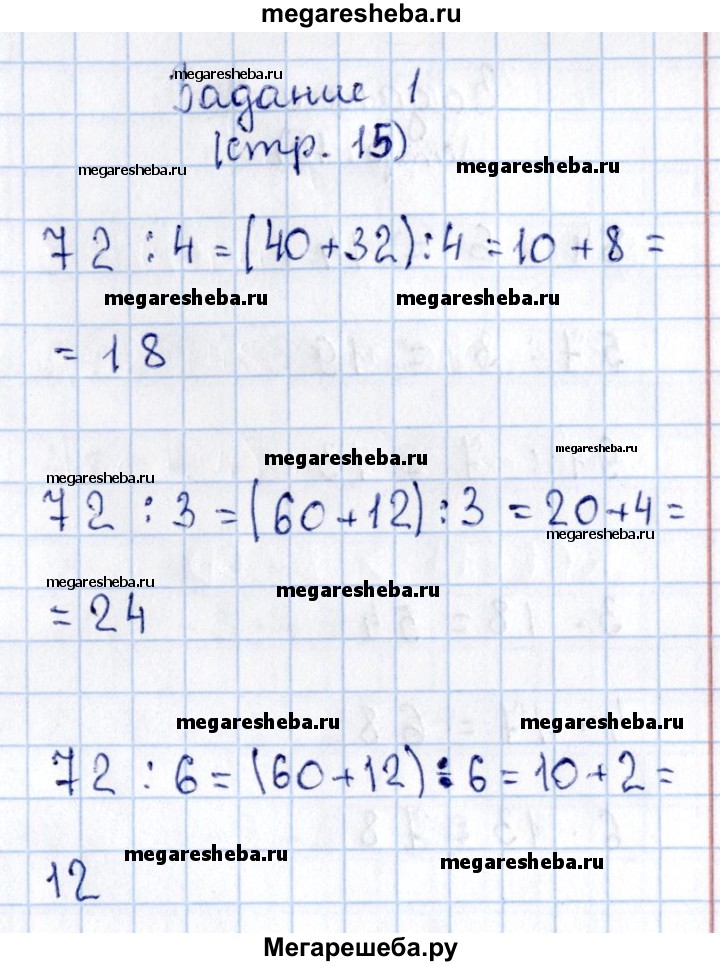 megaresheba.ru
megaresheba.ru
Задание 1
(стр. 15)
megaresheba.ru megaresheba.ru
72 : 4 = (40 + 32) : 4 = 10 + 8 =
megaresheba.ru megaresheba.ru
= 18
megaresheba.ru megaresheba.ru
megaresheba.ru
72 : 3 = (60 + 12) : 3 = 20 + 4 =
megaresheba.ru
megaresheba.ru megaresheba.ru
= 24
megaresheba.ru megaresheba.ru
72 : 6 = (60 + 12) : 6 = 10 + 2 =
megaresheba.ru megaresheba.ru
12
Мегарешеба.ру